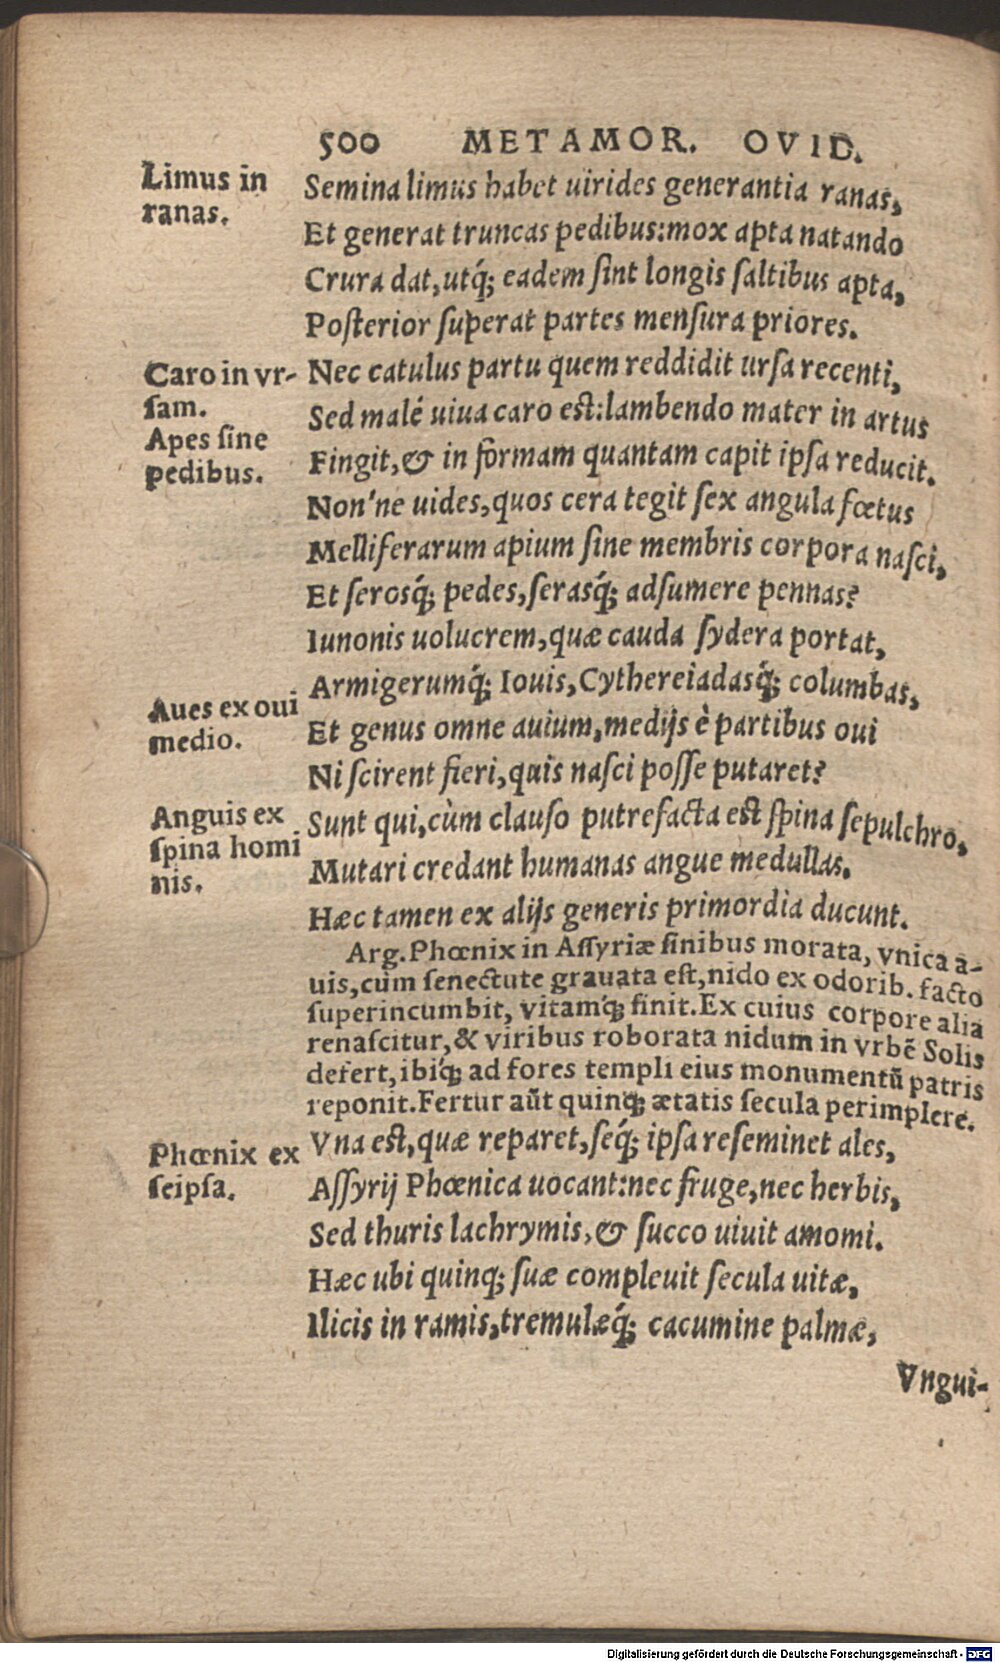 500 METAMOR. OVID.
Limus in
ranas.
Semina limus habet uirides generantia ranas,
Et generat truncas pedibus:mox apta natando
Crura dat,utq́; eadem ſint longis ſaltibus apta,
Poſterior ſuperat partes menſura priores.
Caro in vr-
ſam.
Nec catulus partu quem reddidit urſa recenti,
Sed malé uiua caro eſt:lambendo mater in artus
Apes ſine
pedibus.
Fingit,& in formam quantam capit ipſa reducit.
Non'ne uides,quos cera tegit ſex angula fœtus
Melliferarum apium ſine membris corpora naſci,
Et ſerosq́; pedes,ſerasq́; adſumere pennas?
Iunonis uolucrem,quæ cauda ſydera portat,
Armigerumq́; Iouis,Cythereiadasq́; columbas,
Aues ex oui
medio.
Et genus omne auium,medijs è partibus oui
Ni ſcirent fieri,quis naſci poſſe putaret?
Anguis ex
ſpina homi
nis.
Sunt qui,cùm clauſo putrefacta eſt ſpina ſepulchro,
Mutari credant humanas angue medullas.
Hæc tamen ex alijs generis primordia ducunt.
Arg.Phœnix in Aſſyriæ finibus morata, vnica a-
uis,cùm ſenectute grauata eſt,nido ex odorib. facto
ſuperincumbit, vitamq́; finit.Ex cuius corpore alia
renaſcitur,& viribus roborata nidum in vrbẽ Solis
defert,ibiq́; ad fores templi eius monumentũ patris
reponit.Fertur aũt quinq; ætatis ſecula perimplere.
Phœnix ex
ſeipſa.
Vna eſt,quæ reparet,ſeq́; ipſa reſeminet ales,
Aſſyrij Phœnica uocant:nec fruge,nec herbis,
Sed thuris lachrymis,& ſucco uiuit amomi.
Hæc ubi quinq; ſuæ compleuit ſecula uitæ,
Ilicis in ramis,tremulæq́; cacumine palmæ,
Vngui-
Digitalisierung gefördert durch die Deutsche Forschungsgemeinschaft - DFG